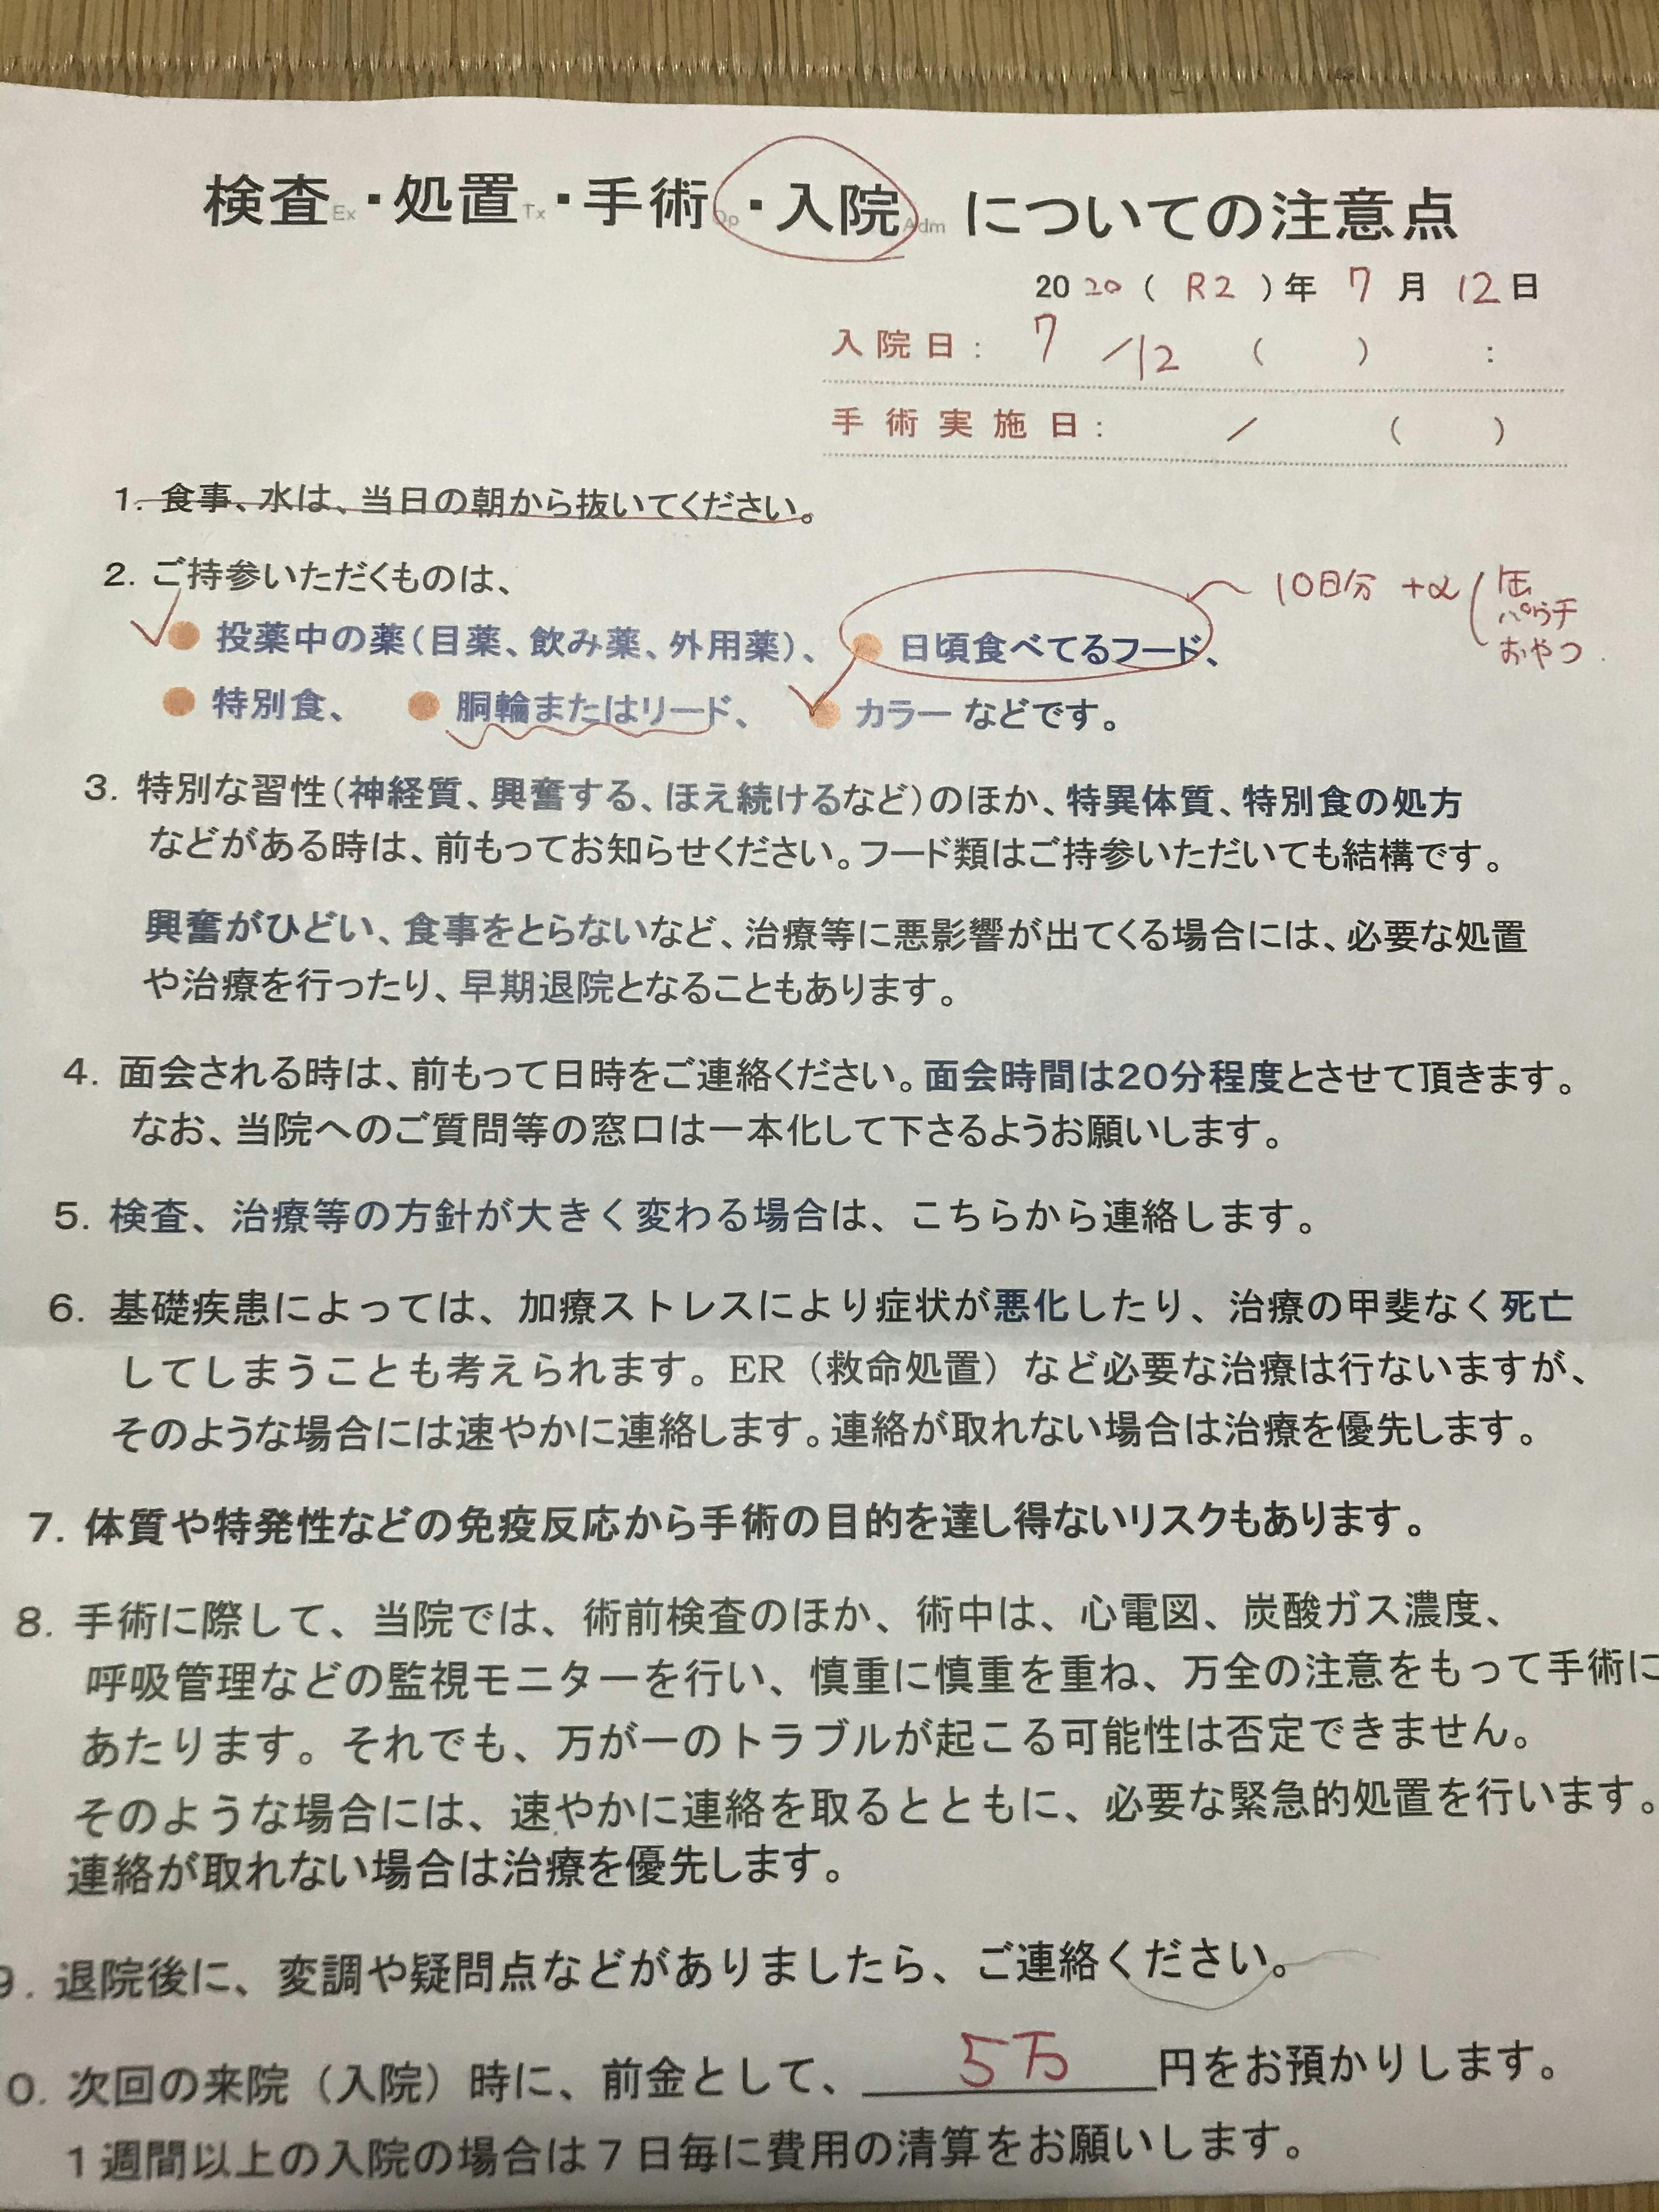 検査Ex・処置Tx・手術Op・入院Adm についての注意点
2020(R2)年 7月 12日
入院日： 7／12 （　　）　：
手術実施日：　／　（　　）
1. 食事、水は、当日の朝から抜いてください。
2. ご持参いただくものは、
10日分 +α
缶
パウチ
おやつ
● 投薬中の薬（目薬、飲み薬、外用薬）、 ● 日頃食べてるフード、
● 特別食、 ● 胴輪またはリード、 ● カラー などです。
3. 特別な習性（神経質、興奮する、ほえ続けるなど）のほか、特異体質、特別食の処方
などがある時は、前もってお知らせください。フード類はご持参いただいても結構です。
興奮がひどい、食事をとらないなど、治療等に悪影響が出てくる場合には、必要な処置
や治療を行ったり、早期退院となることもあります。
4. 面会される時は、前もって日時をご連絡ください。面会時間は20分程度とさせて頂きます。
なお、当院へのご質問等の窓口は一本化して下さるようお願いします。
5. 検査、治療等の方針が大きく変わる場合は、こちらから連絡します。
6. 基礎疾患によっては、加療ストレスにより症状が悪化したり、治療の甲斐なく死亡
してしまうことも考えられます。ER（救命処置）など必要な治療は行ないますが、
そのような場合には速やかに連絡します。連絡が取れない場合は治療を優先します。
7. 体質や特発性などの免疫反応から手術の目的を達し得ないリスクもあります。
8. 手術に際して、当院では、術前検査のほか、術中は、心電図、炭酸ガス濃度、
呼吸管理などの監視モニターを行い、慎重に慎重を重ね、万全の注意をもって手術に
あたります。それでも、万が一のトラブルが起こる可能性は否定できません。
そのような場合には、速やかに連絡を取るとともに、必要な緊急的処置を行います。
連絡が取れない場合は治療を優先します。
9. 退院後に、変調や疑問点などがありましたら、ご連絡ください。
0. 次回の来院（入院）時に、前金として、5万円をお預かりします。
1週間以上の入院の場合は7日毎に費用の清算をお願いします。